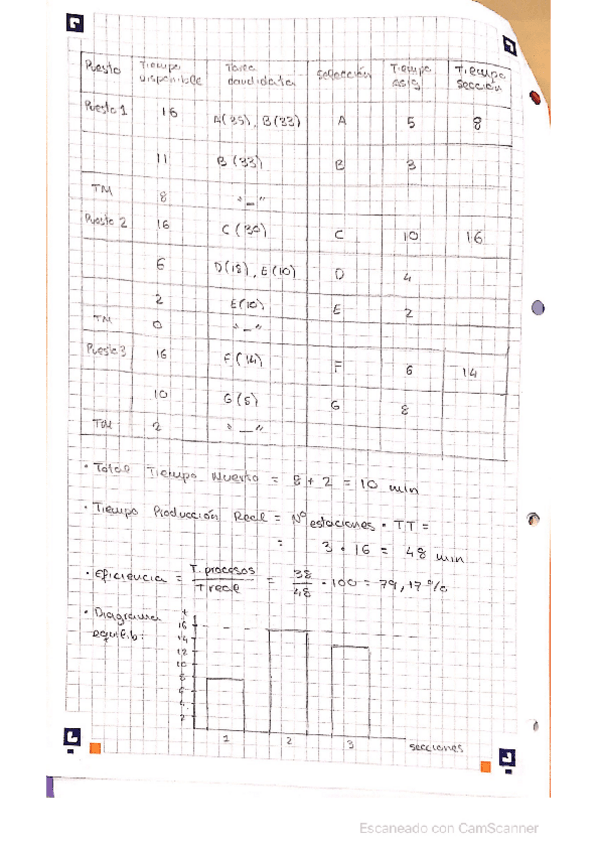 Puesto Tiempo disponible Tarea candidata Selección Tiempo asig Tiempo sección
Puesto 1 16 A(35), B(33) A 5 8
11 B(33) B 3
TM 8 "—"
Puesto 2 16 C(30) C 10 16
6 D(18), E(10) D 4
2 E(10) E 2
TM 0 "—"
Puesto 3 16 F(14) F 6 14
10 G(8) G 8
TM 2 "—"
• Total Tiempo Muerto = 8 + 2 = 10 min
• Tiempo Producción Real = Nº estaciones · TT =
= 3 · 16 = 48 min
• Eficiencia = T. procesos / T real = 38 / 48 · 100 = 79,17%
• Diagrama
equilib:
t
16
14
12
10
8
6
4
2
1 2 3 secciones
Escaneado con CamScanner